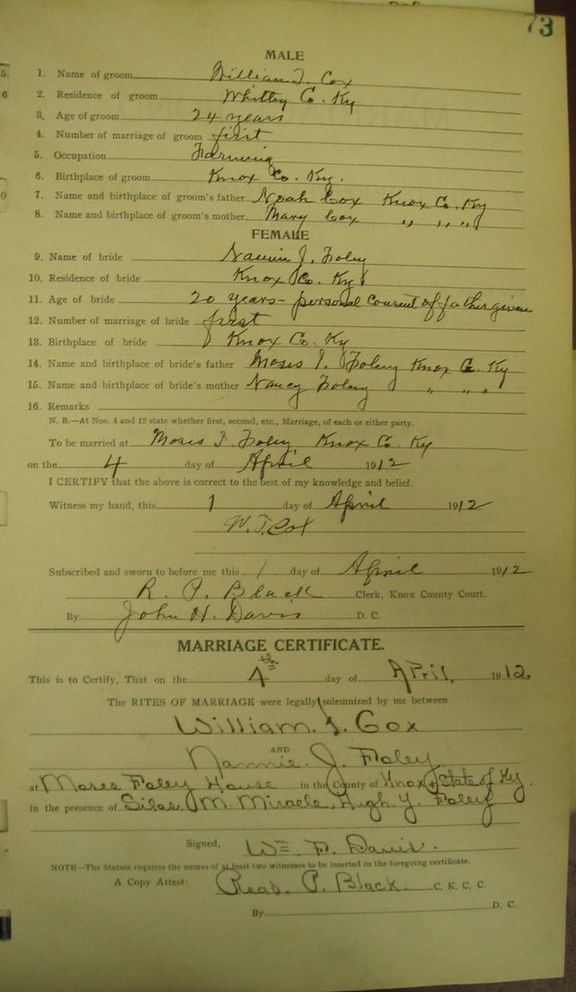 73
MALE
1. Name of groom William J. Cox
2. Residence of groom Whitley Co. Ky
3. Age of groom 24 years
4. Number of marriage of groom first
5. Occupation Farming
6. Birthplace of groom Knox Co. Ky.
7. Name and birthplace of groom's father Noah Cox Knox Co. Ky
8. Name and birthplace of groom's mother Mary Cox " " "
FEMALE
9. Name of bride Nannie J. Foley
10. Residence of bride Knox Co. Ky
11. Age of bride 20 years - personal consent of father given
12. Number of marriage of bride first
13. Birthplace of bride Knox Co. Ky
14. Name and birthplace of bride's father Moses J. Foley Knox Co. Ky
15. Name and birthplace of bride's mother Nancy Foley " " "
16. Remarks
N. B.—At Nos. 4 and 12 state whether first, second, etc., Marriage, of each or either party.
To be married at Moses J Foley Knox Co Ky
on the 4 day of April 1912
I CERTIFY that the above is correct to the best of my knowledge and belief.
Witness my hand, this 1 day of April 1912
W. J. Cox
Subscribed and sworn to before me this 1 day of April 1912
R. P. Black Clerk, Knox County Court.
By John H. Davis D. C.
MARRIAGE CERTIFICATE.
This is to Certify, That on the 4th day of April, 1912
The RITES OF MARRIAGE were legally solemnized by me between
William. J. Cox
AND
Nannie. J. Foley
at Moses Foley House in the County of Knox & State of Ky.
in the presence of Silas M. Miracle, Hugh. Y. Foley
Signed, Wm. F. Davis.
NOTE—The Statute requires the names of at least two witnesses to be inserted in the foregoing certificate.
A Copy Attest: Read. P. Black. C. K. C. C.
By D. C.